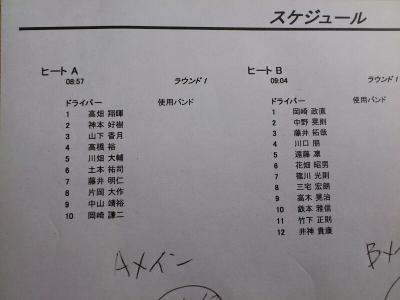 スケジュール
ヒート A
08:57 ラウンド 1
ドライバー 使用バンド
1 高畑 翔暉
2 神本 好樹
3 山下 香月
4 高橋 裕
5 川畑 大輔
6 土本 祐司
7 藤井 明仁
8 片岡 大作
9 中山 靖裕
10 岡崎 謙二
Aメイン
ヒート B
09:04 ラウンド 1
ドライバー 使用バンド
1 岡崎 政直
2 中野 晃則
3 藤井 拓哉
4 川口 朋
5 遠藤 凛
6 花畑 昭男
7 篠川 光則
8 三宅 宏朗
9 高木 晃治
10 鉄本 雅信
11 竹下 正則
12 井神 貴康
Bメ